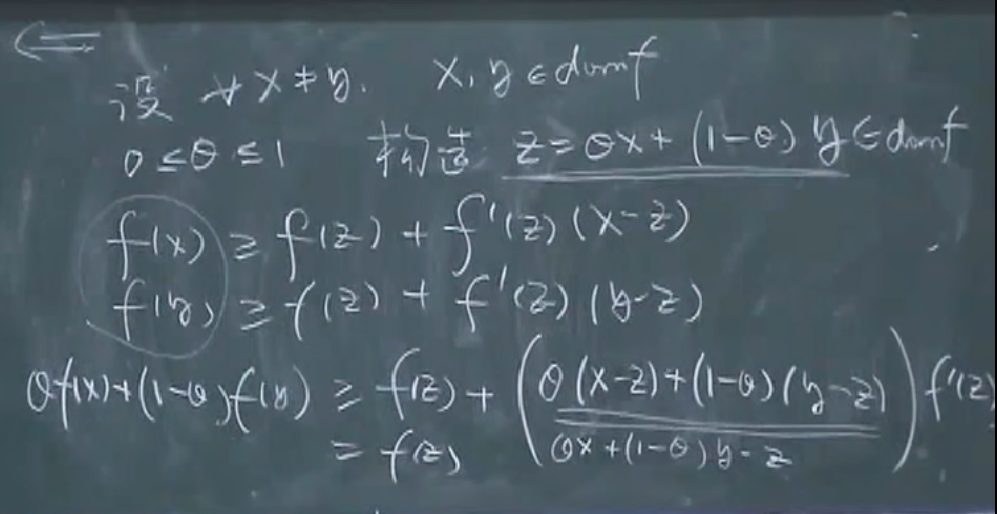 ⇐
设 ∀ x ≠ y. x, y ∈ domf
0 ≤ θ ≤ 1 构造 z = θx + (1-θ) y ∈ domf
f(x) ≥ f(z) + f'(z) (x-z)
f(y) ≥ f(z) + f'(z) (y-z)
θf(x)+(1-θ)f(y) ≥ f(z) + (θ(x-z)+(1-θ)(y-z)) f'(z)
= f(z) θx+(1-θ)y-z